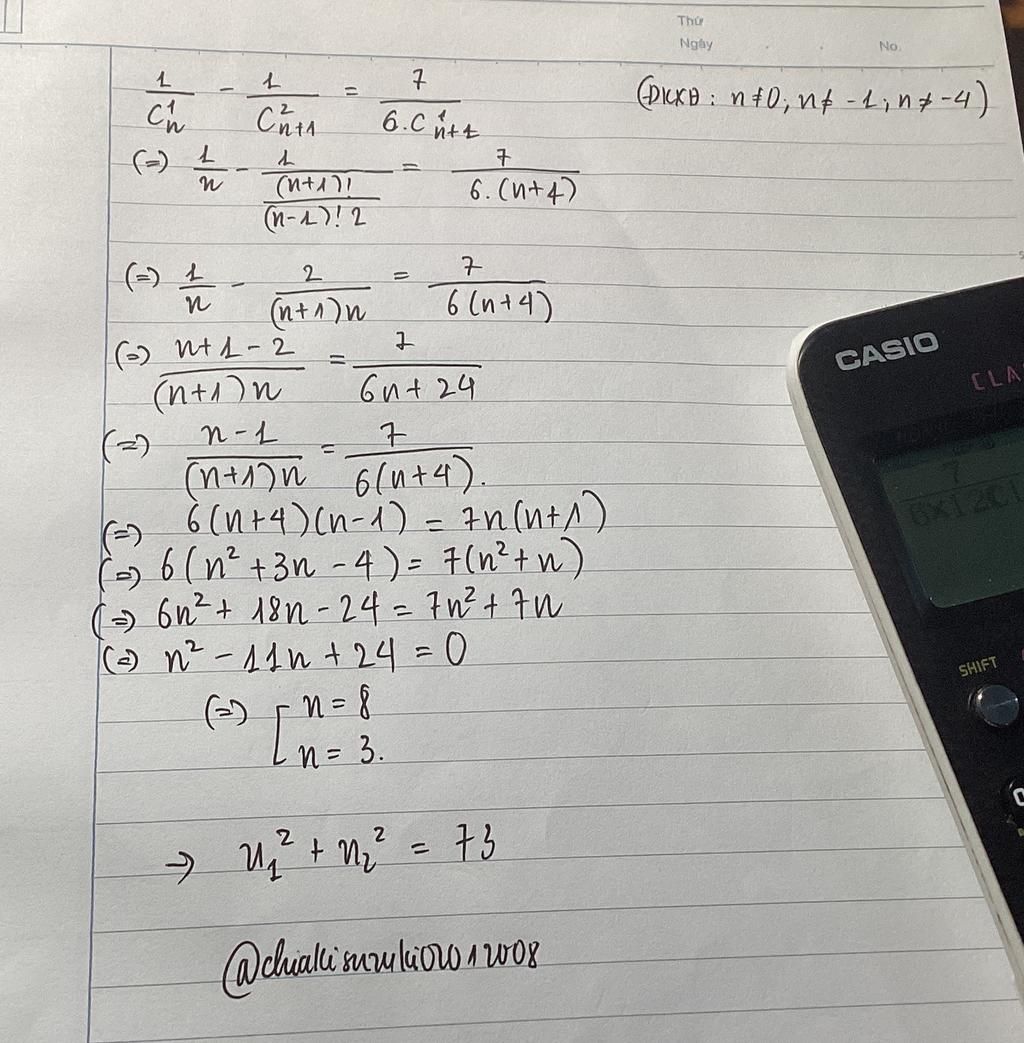 Thứ
Ngày . . No.
1/C¹ₙ - 1/C²ₙ₊₁ = 7/6.C¹ₙ₊₄ (ĐKXĐ: n≠0; n≠-1; n≠-4)
(=) 1/n - 1/((n+1)!/(n-1)!2) = 7/6.(n+4)
(=) 1/n - 2/(n+1)n = 7/6(n+4)
(=) n+1-2/(n+1)n = 7/6n+24
(=) n-1/(n+1)n = 7/6(n+4).
(=) 6(n+4)(n-1) = 7n(n+1)
(=) 6(n²+3n-4) = 7(n²+n)
(=) 6n²+18n-24 = 7n²+7n
(=) n²-11n+24 = 0
(=) [ n = 8
n = 3.
→ n₁² + n₂² = 73
@chiakisuzuki02012008
CASIO
CLA
7
6×12C1
SHIFT